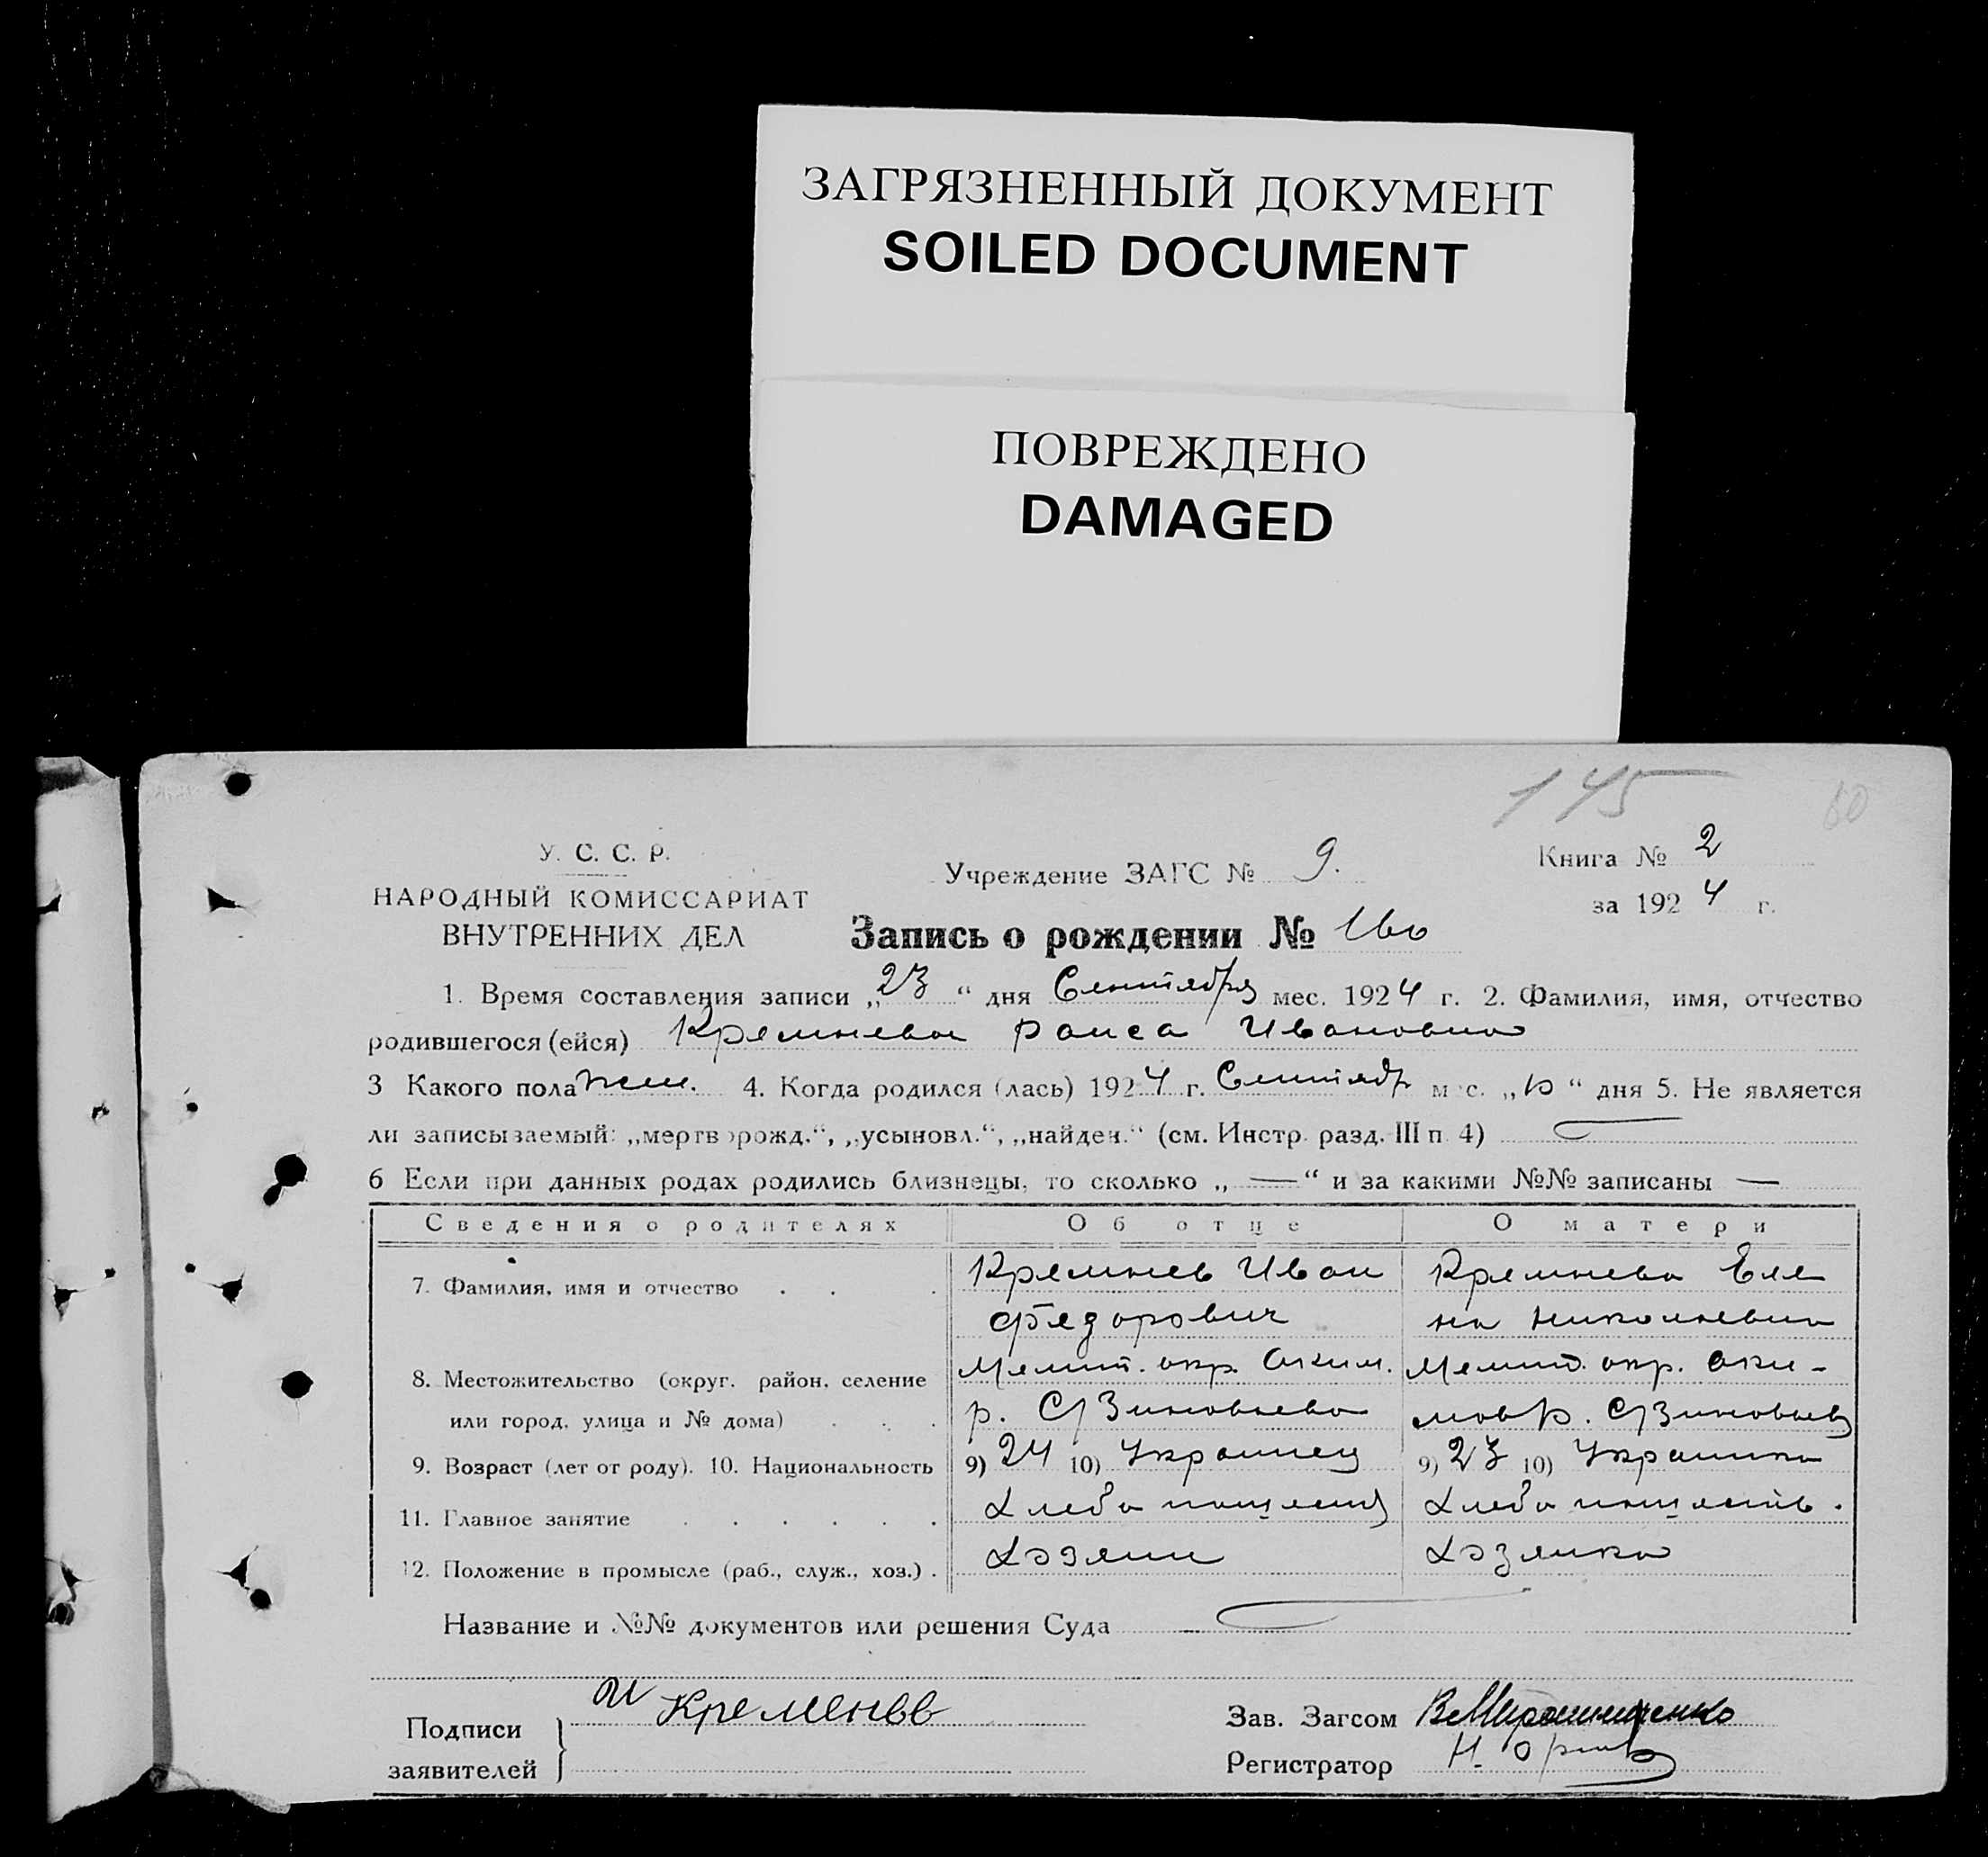 ЗАГРЯЗНЕННЫЙ ДОКУМЕНТ
SOILED DOCUMENT
ПОВРЕЖДЕНО
DAMAGED
145 60
У. С. С. Р.
НАРОДНЫЙ КОМИССАРИАТ
ВНУТРЕННИХ ДЕЛ
Учреждение ЗАГС № 9.
Книга № 2
за 1924 г.
Запись о рождении № 160
1. Время составления записи „23“ дня Сентября мес. 1924 г. 2. Фамилия, имя, отчество
родившегося (ейся) Кремнева Раиса Ивановна
3 Какого пола жен. 4. Когда родился (лась) 1924 г. Сентябр мес. „ “ дня 5. Не является
ли записываемый: „мертворожд.“, „усыновл.“, „найден.“ (см. Инстр. разд. III п. 4)
6 Если при данных родах родились близнецы, то сколько „—“ и за какими №№ записаны —
Сведения о родителях Об отце О матери
7. Фамилия, имя и отчество . . . Кремнев Иван Кремнева Еле
Федорович на Николаевна
8. Местожительство (округ. район, селение Мелит. окр. Аким. Мелит. окр. Аки-
или город, улица и № дома) . . . р. С/Зиновьева мов р. С/Зиновьев
9. Возраст (лет от роду). 10. Национальность 9) 24 10) Украинец 9) 23 10) Украинка
11. Главное занятие . . . . . . Хлебопашец Хлебопашеств.
12. Положение в промысле (раб., служ., хоз.) . Хозяин Хозяйка
Название и №№ документов или решения Суда
Подписи
заявителей
И Кременев
Зав. Загсом В Мирошниченко
Регистратор Н.